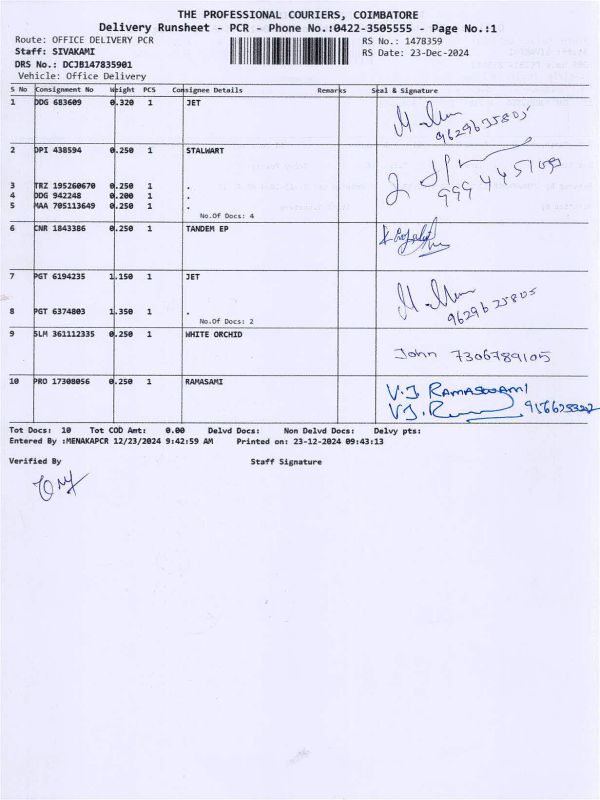 THE PROFESSIONAL COURIERS, COIMBATORE
Delivery Runsheet - PCR - Phone No.:0422-3505555 - Page No.:1
Route: OFFICE DELIVERY PCR RS No.: 1478359
Staff: SIVAKAMI RS Date: 23-Dec-2024
DRS No.: DCJB147835901
Vehicle: Office Delivery
S No Consignment No Weight PCS Consignee Details Remarks Seal & Signature
1 DDG 683609 0.320 1 JET
9629635805
2 DPI 438594 0.250 1 STALWART
3 TRZ 195260670 0.250 1 .
4 DDG 942248 0.200 1 .
5 MAA 705113649 0.250 1 .
No.Of Docs: 4
6 CNR 1843386 0.250 1 TANDEM EP
7 PGT 6194235 1.150 1 JET
8 PGT 6374803 1.350 1 .
No.Of Docs: 2
9 SLM 361112335 0.250 1 WHITE ORCHID
John 7306789105
10 PRO 17308056 0.250 1 RAMASAMI
V.J RAMASWAMI
Tot Docs: 10 Tot COD Amt: 0.00 Delvd Docs: Non Delvd Docs: Delvy pts:
Entered By :MENAKAPCR 12/23/2024 9:42:59 AM Printed on: 23-12-2024 09:43:13
Verified By Staff Signature